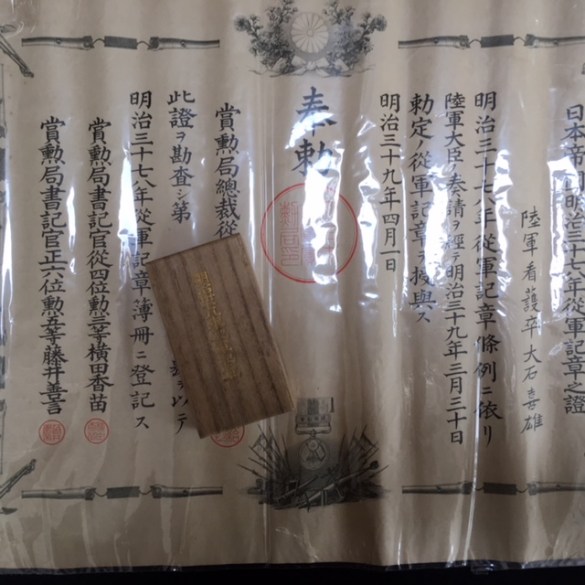 日本帝國明治三十七八年從軍記章之證
陸軍看護卒大石喜雄
明治三十七八年從軍記章條例ニ依リ
陸軍大臣ノ奏請ヲ經テ明治三十九年三月三十日
勅定ノ從軍記章ヲ授與ス
明治三十九年四月一日
奉勅
賞勲局總裁從
此證ヲ勘査シ第
ヲ以テ
明治三十七八年從軍記章簿冊ニ登記ス
賞勲局書記官從四位勲三等横田香苗
賞勲局書記官正六位勲五等藤井善言